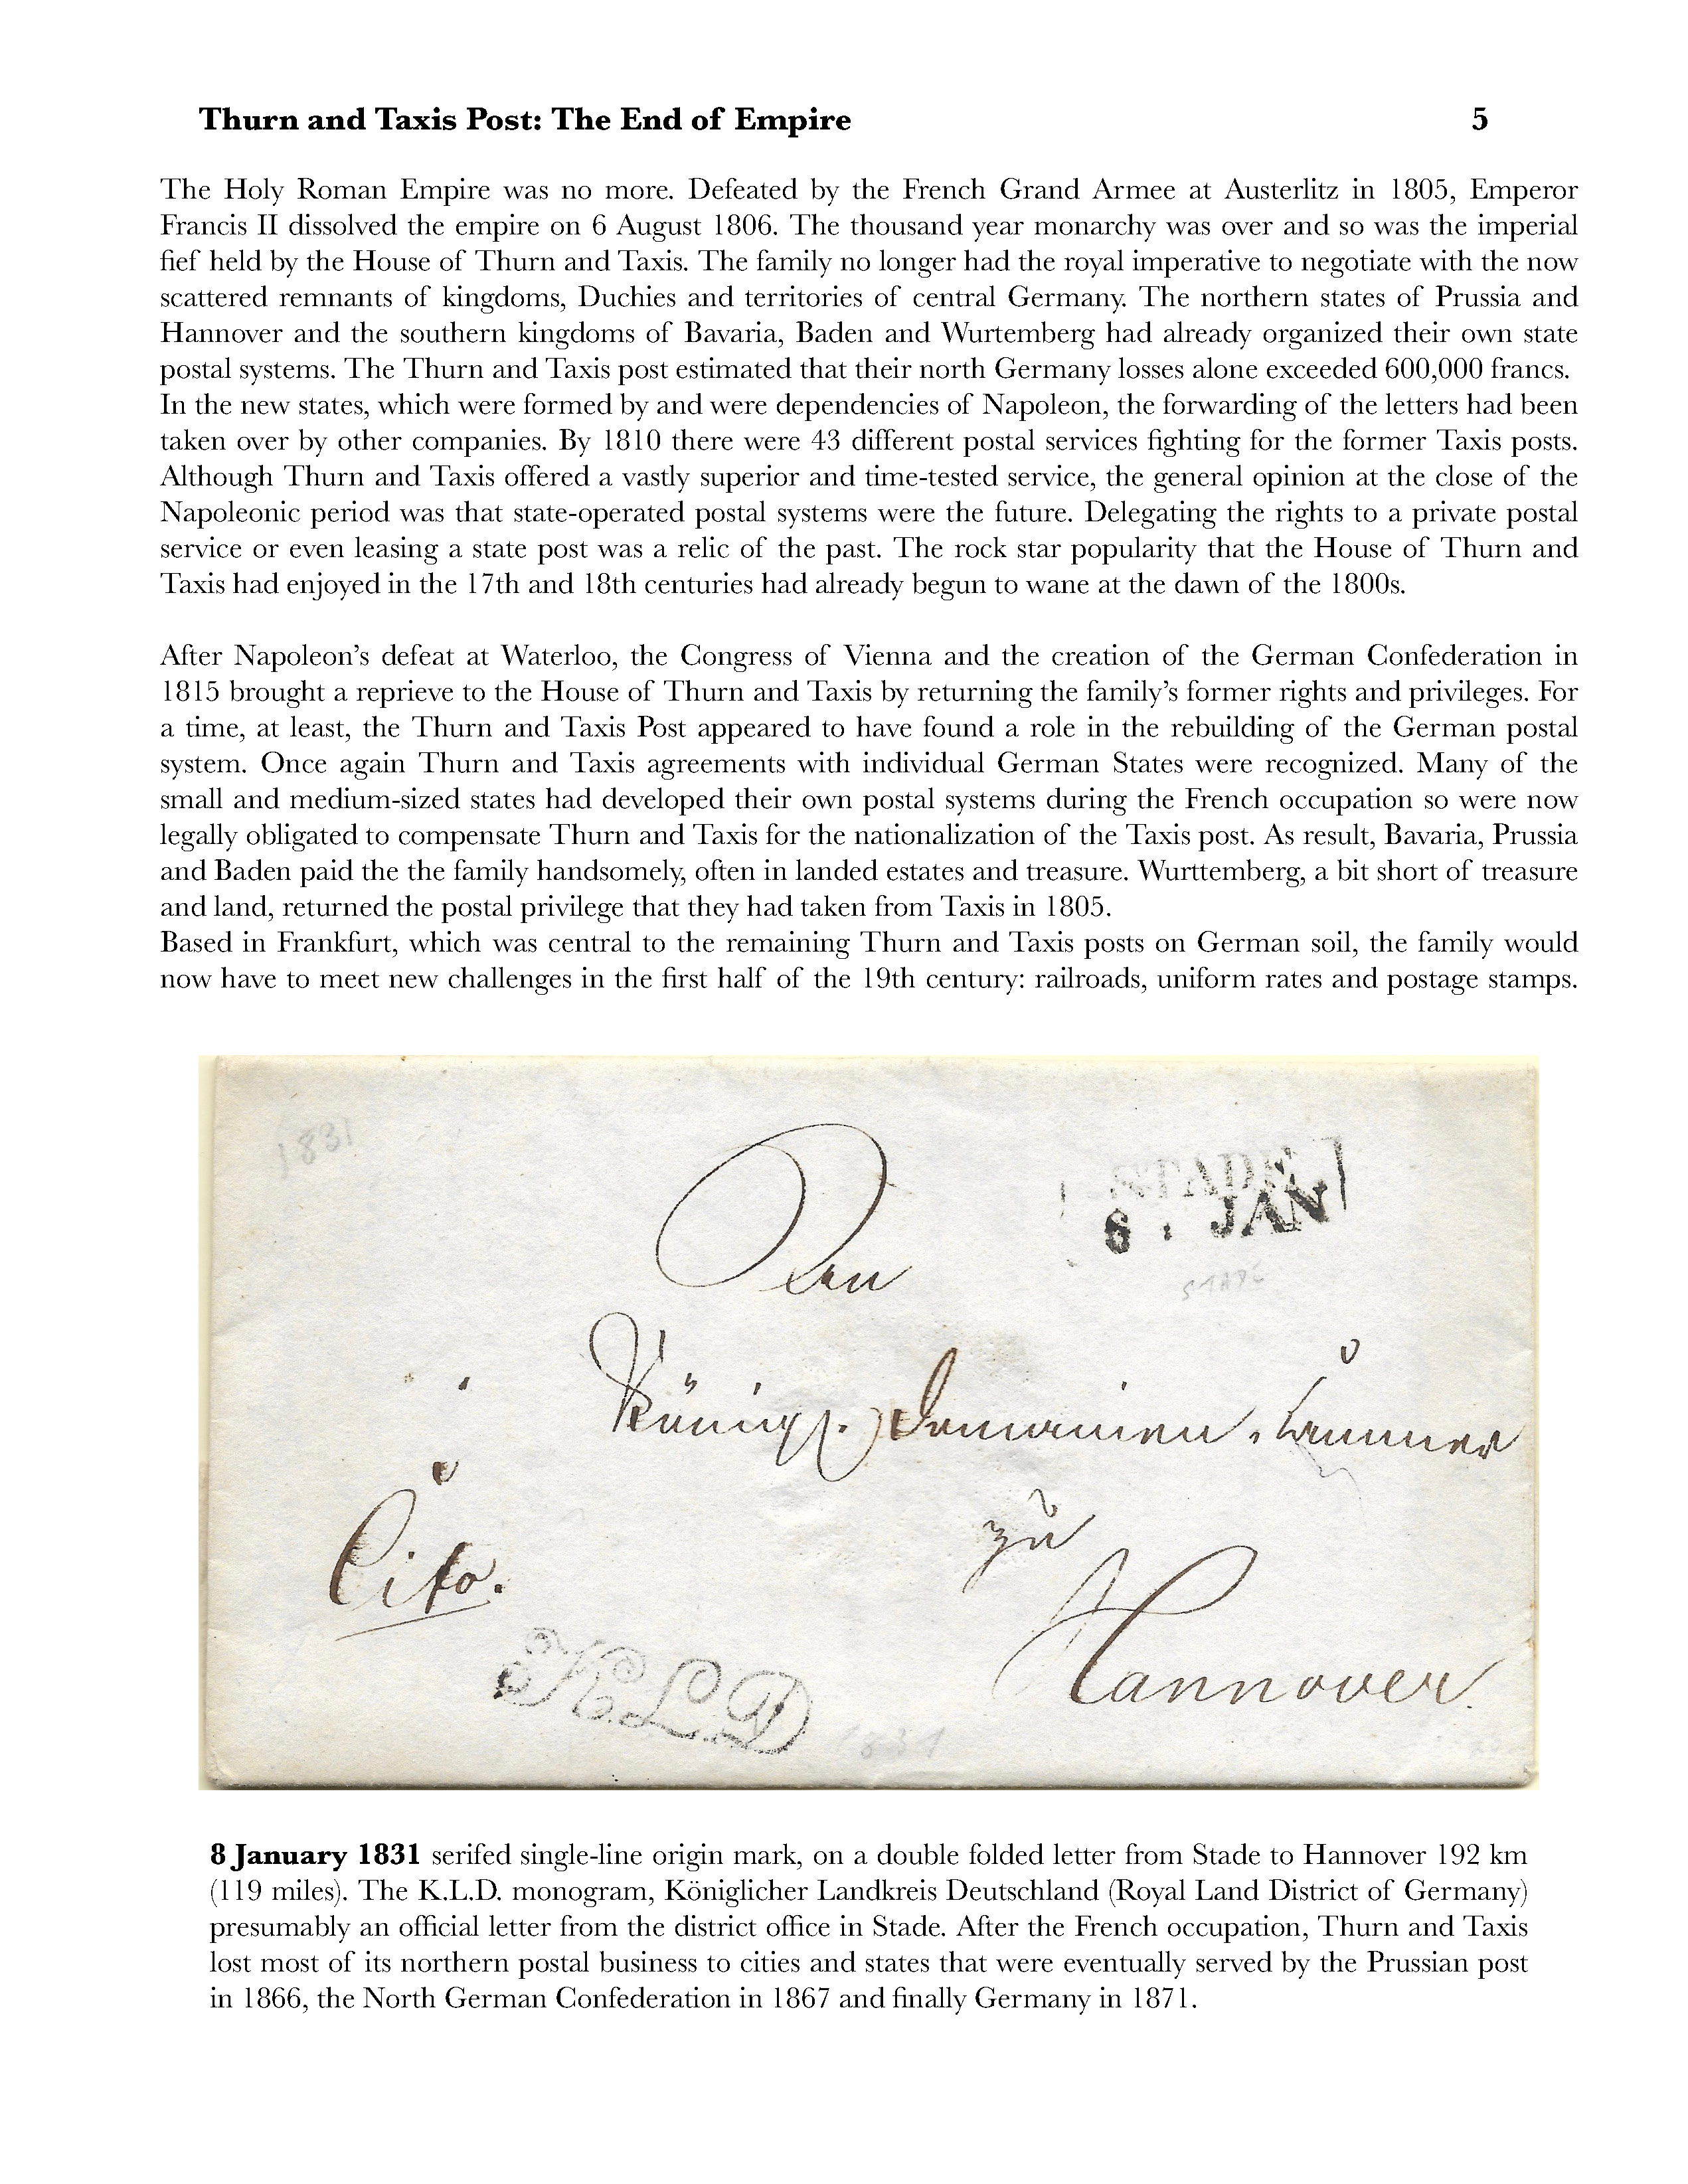 Thurn and Taxis Post: The End of Empire 5
The Holy Roman Empire was no more. Defeated by the French Grand Armee at Austerlitz in 1805, Emperor
Francis II dissolved the empire on 6 August 1806. The thousand year monarchy was over and so was the imperial
fief held by the House of Thurn and Taxis. The family no longer had the royal imperative to negotiate with the now
scattered remnants of kingdoms, Duchies and territories of central Germany. The northern states of Prussia and
Hannover and the southern kingdoms of Bavaria, Baden and Wurtemberg had already organized their own state
postal systems. The Thurn and Taxis post estimated that their north Germany losses alone exceeded 600,000 francs.
In the new states, which were formed by and were dependencies of Napoleon, the forwarding of the letters had been
taken over by other companies. By 1810 there were 43 different postal services fighting for the former Taxis posts.
Although Thurn and Taxis offered a vastly superior and time-tested service, the general opinion at the close of the
Napoleonic period was that state-operated postal systems were the future. Delegating the rights to a private postal
service or even leasing a state post was a relic of the past. The rock star popularity that the House of Thurn and
Taxis had enjoyed in the 17th and 18th centuries had already begun to wane at the dawn of the 1800s.
After Napoleon's defeat at Waterloo, the Congress of Vienna and the creation of the German Confederation in
1815 brought a reprieve to the House of Thurn and Taxis by returning the family's former rights and privileges. For
a time, at least, the Thurn and Taxis Post appeared to have found a role in the rebuilding of the German postal
system. Once again Thurn and Taxis agreements with individual German States were recognized. Many of the
small and medium-sized states had developed their own postal systems during the French occupation so were now
legally obligated to compensate Thurn and Taxis for the nationalization of the Taxis post. As result, Bavaria, Prussia
and Baden paid the the family handsomely, often in landed estates and treasure. Wurttemberg, a bit short of treasure
and land, returned the postal privilege that they had taken from Taxis in 1805.
Based in Frankfurt, which was central to the remaining Thurn and Taxis posts on German soil, the family would
now have to meet new challenges in the first half of the 19th century: railroads, uniform rates and postage stamps.
1831
STADE
8 . JAN
STADE
Königl. Domainen-Cammer
zu
Cito.
Hannover.
K.L.D
1831
8 January 1831 serifed single-line origin mark, on a double folded letter from Stade to Hannover 192 km
(119 miles). The K.L.D. monogram, Königlicher Landkreis Deutschland (Royal Land District of Germany)
presumably an official letter from the district office in Stade. After the French occupation, Thurn and Taxis
lost most of its northern postal business to cities and states that were eventually served by the Prussian post
in 1866, the North German Confederation in 1867 and finally Germany in 1871.